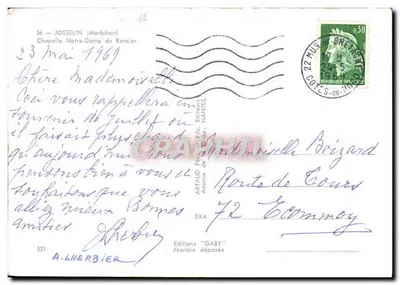 56 - JOSSELIN (Morbihan)
Chapelle Notre-Dame du Roncier
23 Mai 1969
Chère Mademoiselle
Ceci vous rappellera un
souvenir de juillet où
il faisait plus chaud
qu'aujourd'hui. Nous
pensons bien à vous et
souhaitons que vous
alliez mieux. Bonnes
amitiés
Lherbier
A. LHERBIER
521
Editions "GABY"
Marque déposée
EXA
ARTAUD
NANTES
CARTAPRO
0,30
22 MUR DE BRETAGNE
COTES-DU-NORD
Mademoiselle Beizard
Route de Tours
72 Ecommoy